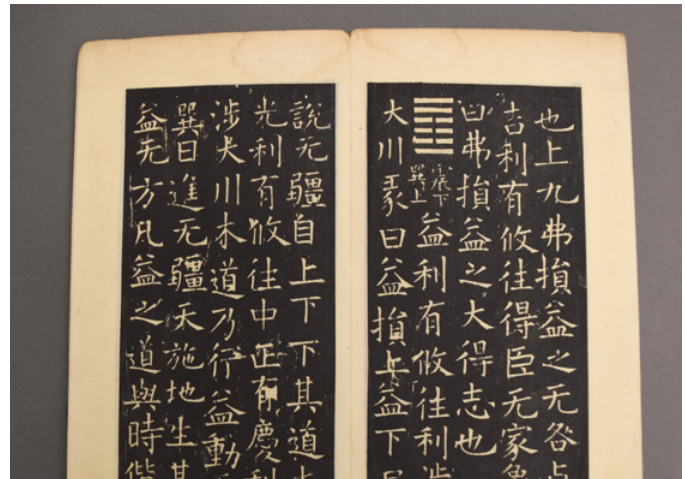 也上九弗損益之无咎貞
吉利有攸往得臣无家象
曰弗損益之大得志也
䷩震下巽上益利有攸往利涉
大川彖曰益損上益下
說无疆自上下下其道
光利有攸往中正有慶利
涉大川木道乃行益動
巽日進无疆天施地生其
益无方凡益之道與時偕